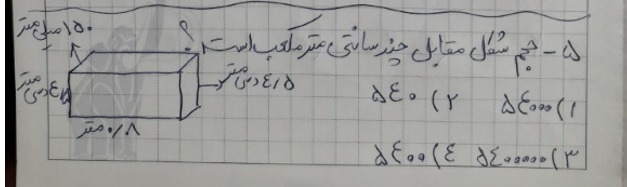 ۵ - حجم شکل مقابل چند سانتی متر مکعب است؟
۱۵۰ میلی متر
۴/۵ دسی متر
۴/۵ دسی متر
۰/۸ متر
۱) ۵۴۰۰۰ ۲) ۵۴۰
۳) ۵۴۰۰۰۰۰ ۴) ۵۴۰۰